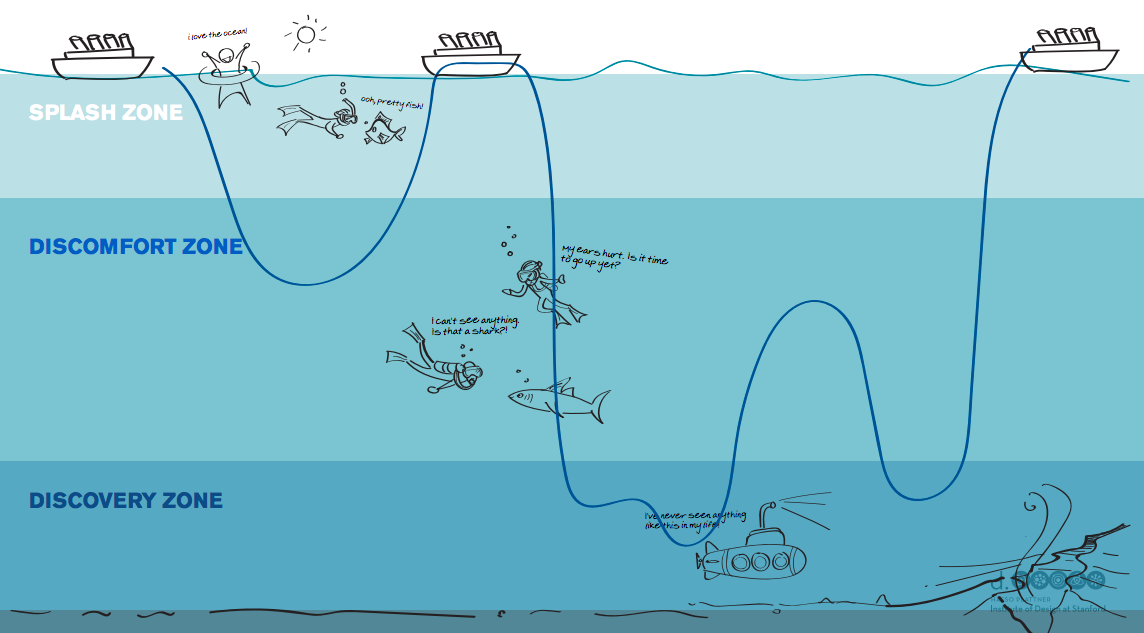 i love the ocean!
ooh, pretty fish!
SPLASH ZONE
DISCOMFORT ZONE
My ears hurt. Is it time
to go up yet?
I can't see anything.
Is that a shark?!
DISCOVERY ZONE
I've never seen anything
like this in my life!
d.
Institute of Design at Stanford